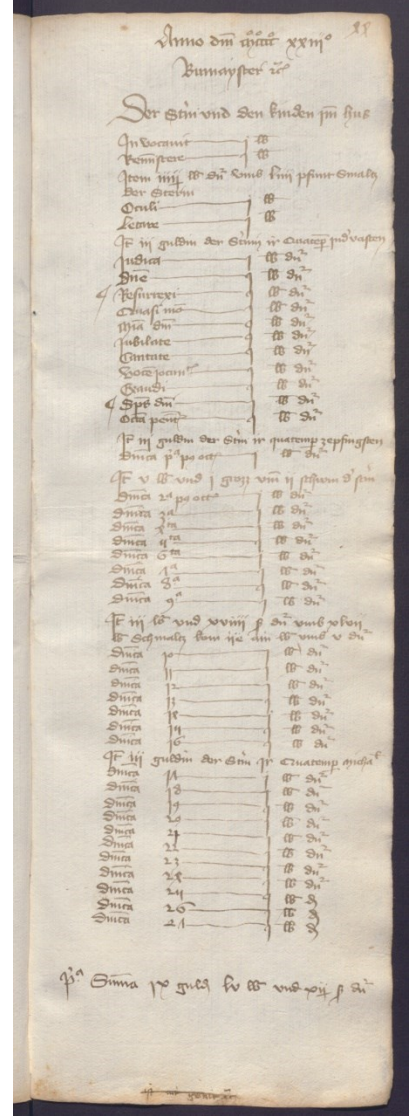 Anno dm̄ mºccccº xxiiiº
Bumayster
Der Stin vnd den kinden jm hus
Invocavit j lb
Reminiscere j lb
Item iiii lb dn̄ vmb liiij pfunt Smaltz
der Sterin
Oculi j lb
Letare j lb
It iij guldin der Stinn ir Quatemp vasten
Judica j lb dn̄
Dn̄e j lb dn̄
Resurrexi j lb dn̄
Quasi mo j lb dn̄
Mia dm̄ j lb dn̄
Jubilate j lb dn̄
Cantate j lb dn̄
Voce jocun j lb dn̄
Exaudi j lb dn̄
Sps dn̄i j lb dn̄
Octa pent j lb dn̄
It iij guldin der Stin ir quatemp ze pfingsten
Dn̄ica pª po oct j lb dn̄
It v lb vnd j gross vm̄ ij schwin d' stin
Dn̄ica 2ª po oct j lb dn̄
Dn̄ica 3ª j lb dn̄
Dn̄ica 4ta j lb dn̄
Dn̄ica 5ta j lb dn̄
Dn̄ica 6ta j lb dn̄
Dn̄ica 7ª j lb dn̄
Dn̄ica 8ª j lb dn̄
Dn̄ica 9ª j lb dn̄
It iij lb vnd xviiii ß dn̄ vmb xlvii
lb Schmaltz kom ain lb vmb v dn̄
Dn̄ica 10 j lb dn̄
Dn̄ica 11 j lb dn̄
Dn̄ica 12 j lb dn̄
Dn̄ica 13 j lb dn̄
Dn̄ica 14 j lb dn̄
Dn̄ica 15 j lb dn̄
Dn̄ica 16 j lb dn̄
It iij guldin der Stin ir Quatemp micha
Dn̄ica 17 j lb dn̄
Dn̄ica 18 j lb dn̄
Dn̄ica 19 j lb dn̄
Dn̄ica 20 j lb dn̄
Dn̄ica 21 j lb dn̄
Dn̄ica 22 j lb dn̄
Dn̄ica 23 j lb dn̄
Dn̄ica 24 j lb dn̄
Dn̄ica 25 j lb dn̄
Dn̄ica 26 j lb d
Dn̄ica 27 j lb d
pª Sum̄a ix guld lv lb vnd xij ß dn̄